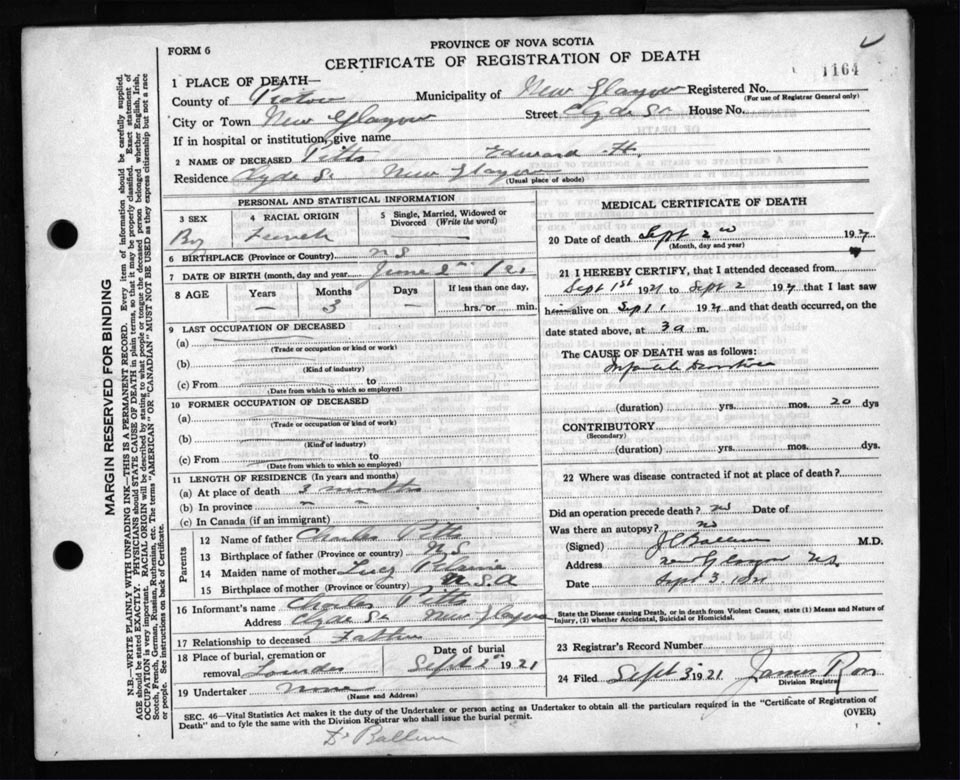 FORM 6
PROVINCE OF NOVA SCOTIA
CERTIFICATE OF REGISTRATION OF DEATH
1164
1 PLACE OF DEATH—
County of Pictou Municipality of New Glasgow Registered No.
(For use of Registrar General only)
City or Town New Glasgow Street Clyde St House No.
If in hospital or institution, give name
2 NAME OF DECEASED Pitts Edward H.
Residence Clyde St. New Glasgow
(Usual place of abode)
PERSONAL AND STATISTICAL INFORMATION
3 SEX
Boy
4 RACIAL ORIGIN
French
5 Single, Married, Widowed or Divorced (Write the word)
—
6 BIRTHPLACE (Province or Country) N S
7 DATE OF BIRTH (month, day and year) June 2nd /21
8 AGE Years Months Days If less than one day,
— 3 — hrs. or min.
9 LAST OCCUPATION OF DECEASED
(a)
(Trade or occupation or kind or work)
(b)
(Kind of industry)
(c) From to
(Date from which to which so employed)
10 FORMER OCCUPATION OF DECEASED
(a)
(Trade or occupation or kind of work)
(b)
(Kind of industry)
(c) From to
(Date from which to which so employed)
11 LENGTH OF RESIDENCE (In years and months)
(a) At place of death 3 months
(b) In province " "
(c) In Canada (if an immigrant)
Parents
12 Name of father Charles Pitts
13 Birthplace of father (Province or country) N S
14 Maiden name of mother Lucy
15 Birthplace of mother (Province or country) U.S.A
16 Informant's name Charles Pitts
Address Clyde St. New Glasgow
17 Relationship to deceased Father
18 Place of burial, cremation or removal Lourdes
Date of burial Sept 2 1921
19 Undertaker None
(Name and Address)
MEDICAL CERTIFICATE OF DEATH
20 Date of death Sept 2nd 192
(Month, day and year)
21 I HEREBY CERTIFY, that I attended deceased from
Sept 1st 1921 to Sept 2 1921 that I last saw
him alive on Sept 1 1921 and that death occurred, on the
date stated above, at 3 a m.
The CAUSE OF DEATH was as follows:
Infantile
(duration) yrs. mos. 20 dys
CONTRIBUTORY
(Secondary)
(duration) yrs. mos. dys.
22 Where was disease contracted if not at place of death?
Did an operation precede death? No Date of
Was there an autopsy? No
(Signed) M.D.
Address New Glasgow NS
Date Sept 3 1921
State the Disease causing Death, or in death from Violent Causes, state (1) Means and Nature of Injury, (2) whether Accidental, Suicidal or Homicidal.
23 Registrar's Record Number
24 Filed Sept 3 1921 James Ross
Division Registrar
SEC. 46—Vital Statistics Act makes it the duty of the Undertaker or person acting as Undertaker to obtain all the particulars required in the "Certificate of Registration of
Death" and to fyle the same with the Division Registrar who shall issue the burial permit. (OVER)
MARGIN RESERVED FOR BINDING
N.B.—WRITE PLAINLY WITH UNFADING INK—THIS IS A PERMANENT RECORD. Every item of information should be carefully supplied.
AGE should be stated EXACTLY. PHYSICIANS should STATE CAUSE OF DEATH in plain terms, so that it may be properly classified. Exact statement of
OCCUPATION is very important. RACIAL ORIGIN will be described by stating to what people or tongue the deceased person belonged whether English, Irish,
Scotch, French, German, Russian, Ruthenian, etc. The terms "AMERICAN" or "CANADIAN" MUST NOT BE USED as they express citizenship but not a race
or people. See instructions on back of Certificate.